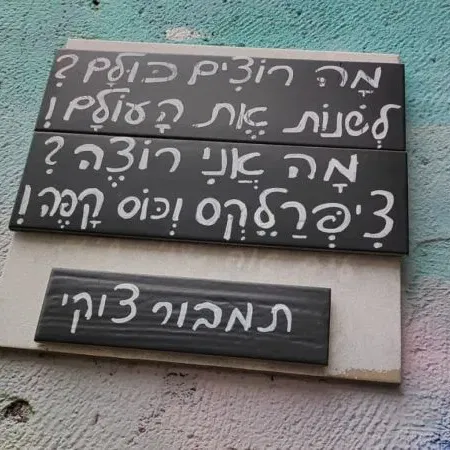 מָה רוֹצִים כּוּלָם?
לְשַׁנּוֹת אֶת הָעוֹלָם!
מָה אֲנִי רוֹצֶה?
צִיפְּרַלֶקְס וְכּוֹס קָפֶה!
תמבור צוקי